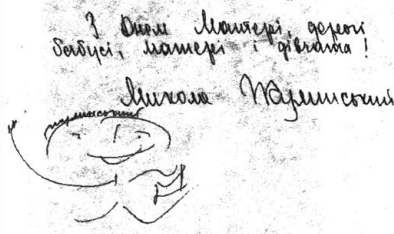 З Днем Матері, дорогі
бабусі, матері і дівчата!
Микола